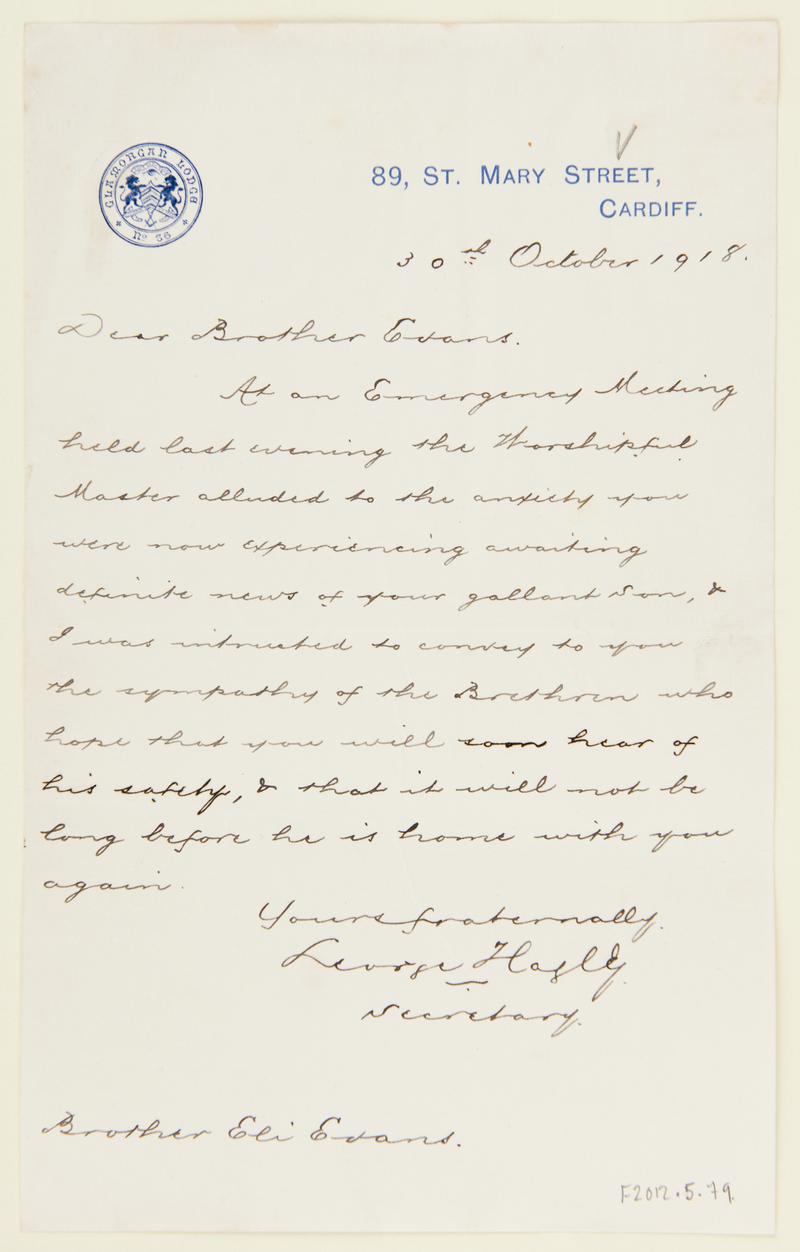 GLAMORGAN LODGE
No 36
89, ST. MARY STREET,
CARDIFF.
30th October 1918.
Dear Brother Evans.
At an Emergency Meeting
held last evening the Worshipful
Master alluded to the anxiety you
were now experiencing awaiting
definite news of your gallant son, &
I was intrusted to convey to you
the sympathy of the Brethren who
hope that you will soon hear of
his safety, & that it will not be
long before he is home with you
again.
Yours fraternally.
George Hagly
Secretary.
Brother Eli Evans.
F2012.5.79.